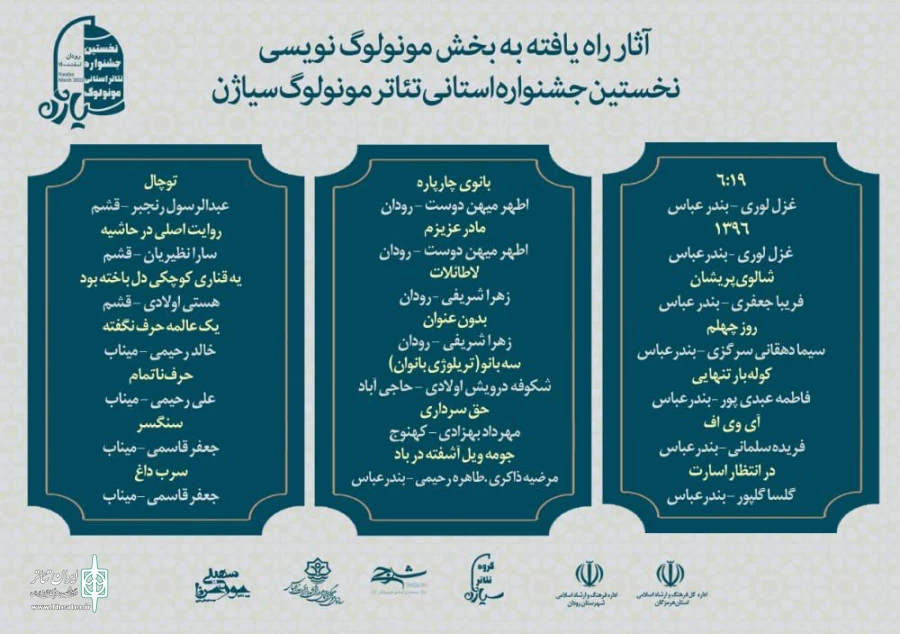 آثار راه یافته به بخش مونولوگ نویسی
نخستین جشنواره استانی تئاتر مونولوگ سیاژن
نخستین
جشنواره
تئاتر استانی
مونولوگ
سیاژن
رودان
March 2022
۶:۱۹
غزل لوری - بندر عباس
۱۳۹۶
غزل لوری - بندرعباس
شالوی پریشان
فریبا جعفری - بندر عباس
روز چهلم
سیما دهقانی سرگزی - بندرعباس
کوله بار تنهایی
فاطمه عبدی پور - بندرعباس
آی وی اف
فریده سلمانی - بندرعباس
در انتظار اسارت
گلسا گلپور - بندرعباس
بانوی چارپاره
اطهر میهن دوست - رودان
مادر عزیزم
اطهر میهن دوست - رودان
لاطائلات
زهرا شریفی - رودان
بدون عنوان
زهرا شریفی - رودان
سه بانو (تریلوژی بانوان)
شکوفه درویش اولادی - حاجی آباد
حق سرداری
مهرداد بهزادی - کهنوج
جومه ویل آشفته در باد
مرضیه ذاکری.طاهره رحیمی - بندرعباس
توچال
عبدالرسول رنجبر - قشم
روایت اصلی در حاشیه
سارا نظیریان - قشم
یه قناری کوچکی دل باخته بود
هستی اولادی - قشم
یک عالمه حرف نگفته
خالد رحیمی - میناب
حرف ناتمام
علی رحیمی - میناب
سنگسر
جعفر قاسمی - میناب
سرب داغ
جعفر قاسمی - میناب
اداره کل فرهنگ و ارشاد اسلامی
استان هرمزگان
اداره فرهنگ و ارشاد اسلامی
شهرستان رودان
گروه
تئاتر
سیاژن
ایران تئاتر
www.theater.ir